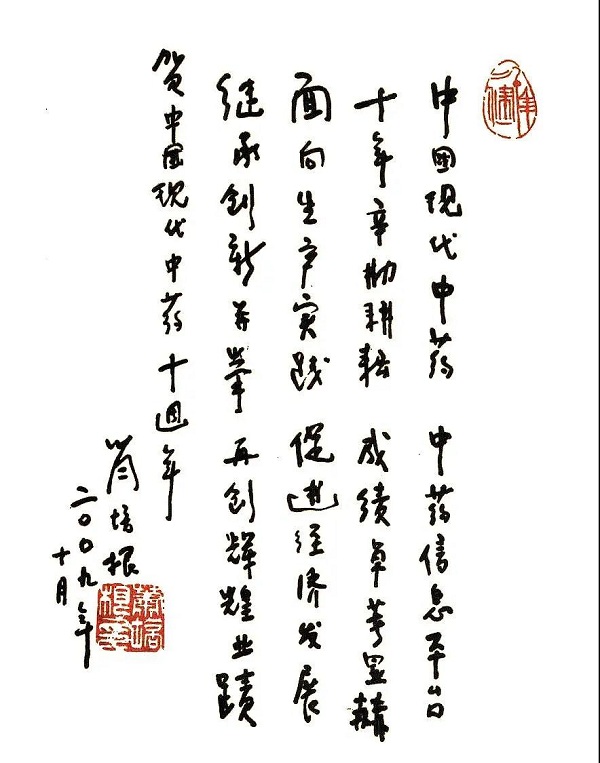 中國现代中药 中药信息平台
十年辛勤耕耘 成绩卓著显赫
面向生产实践 促进经济发展
继承创新并举 再创辉煌业蹟
贺中国现代中药十週年
肖培根
二〇〇九年
十月